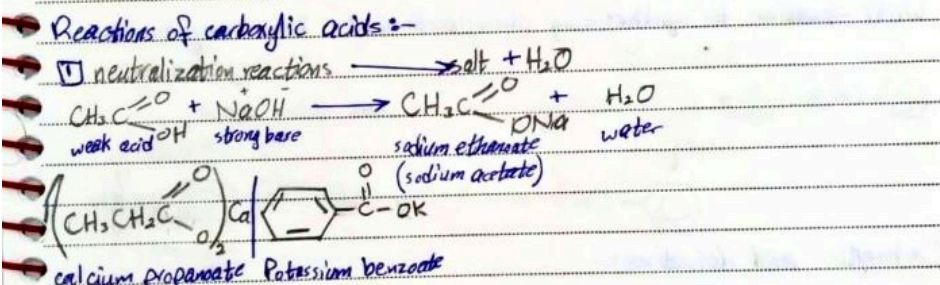 Reactions of carboxylic acids :-
1 neutralization reactions → salt + H₂O
CH₃C=O OH + Na⁺OH⁻ → CH₃C=O ONa + H₂O
weak acid strong base sodium ethanoate water
(sodium acetate)
(CH₃CH₂C=O O)₂ Ca | O || C-OK
calcium propanoate Potassium benzoate